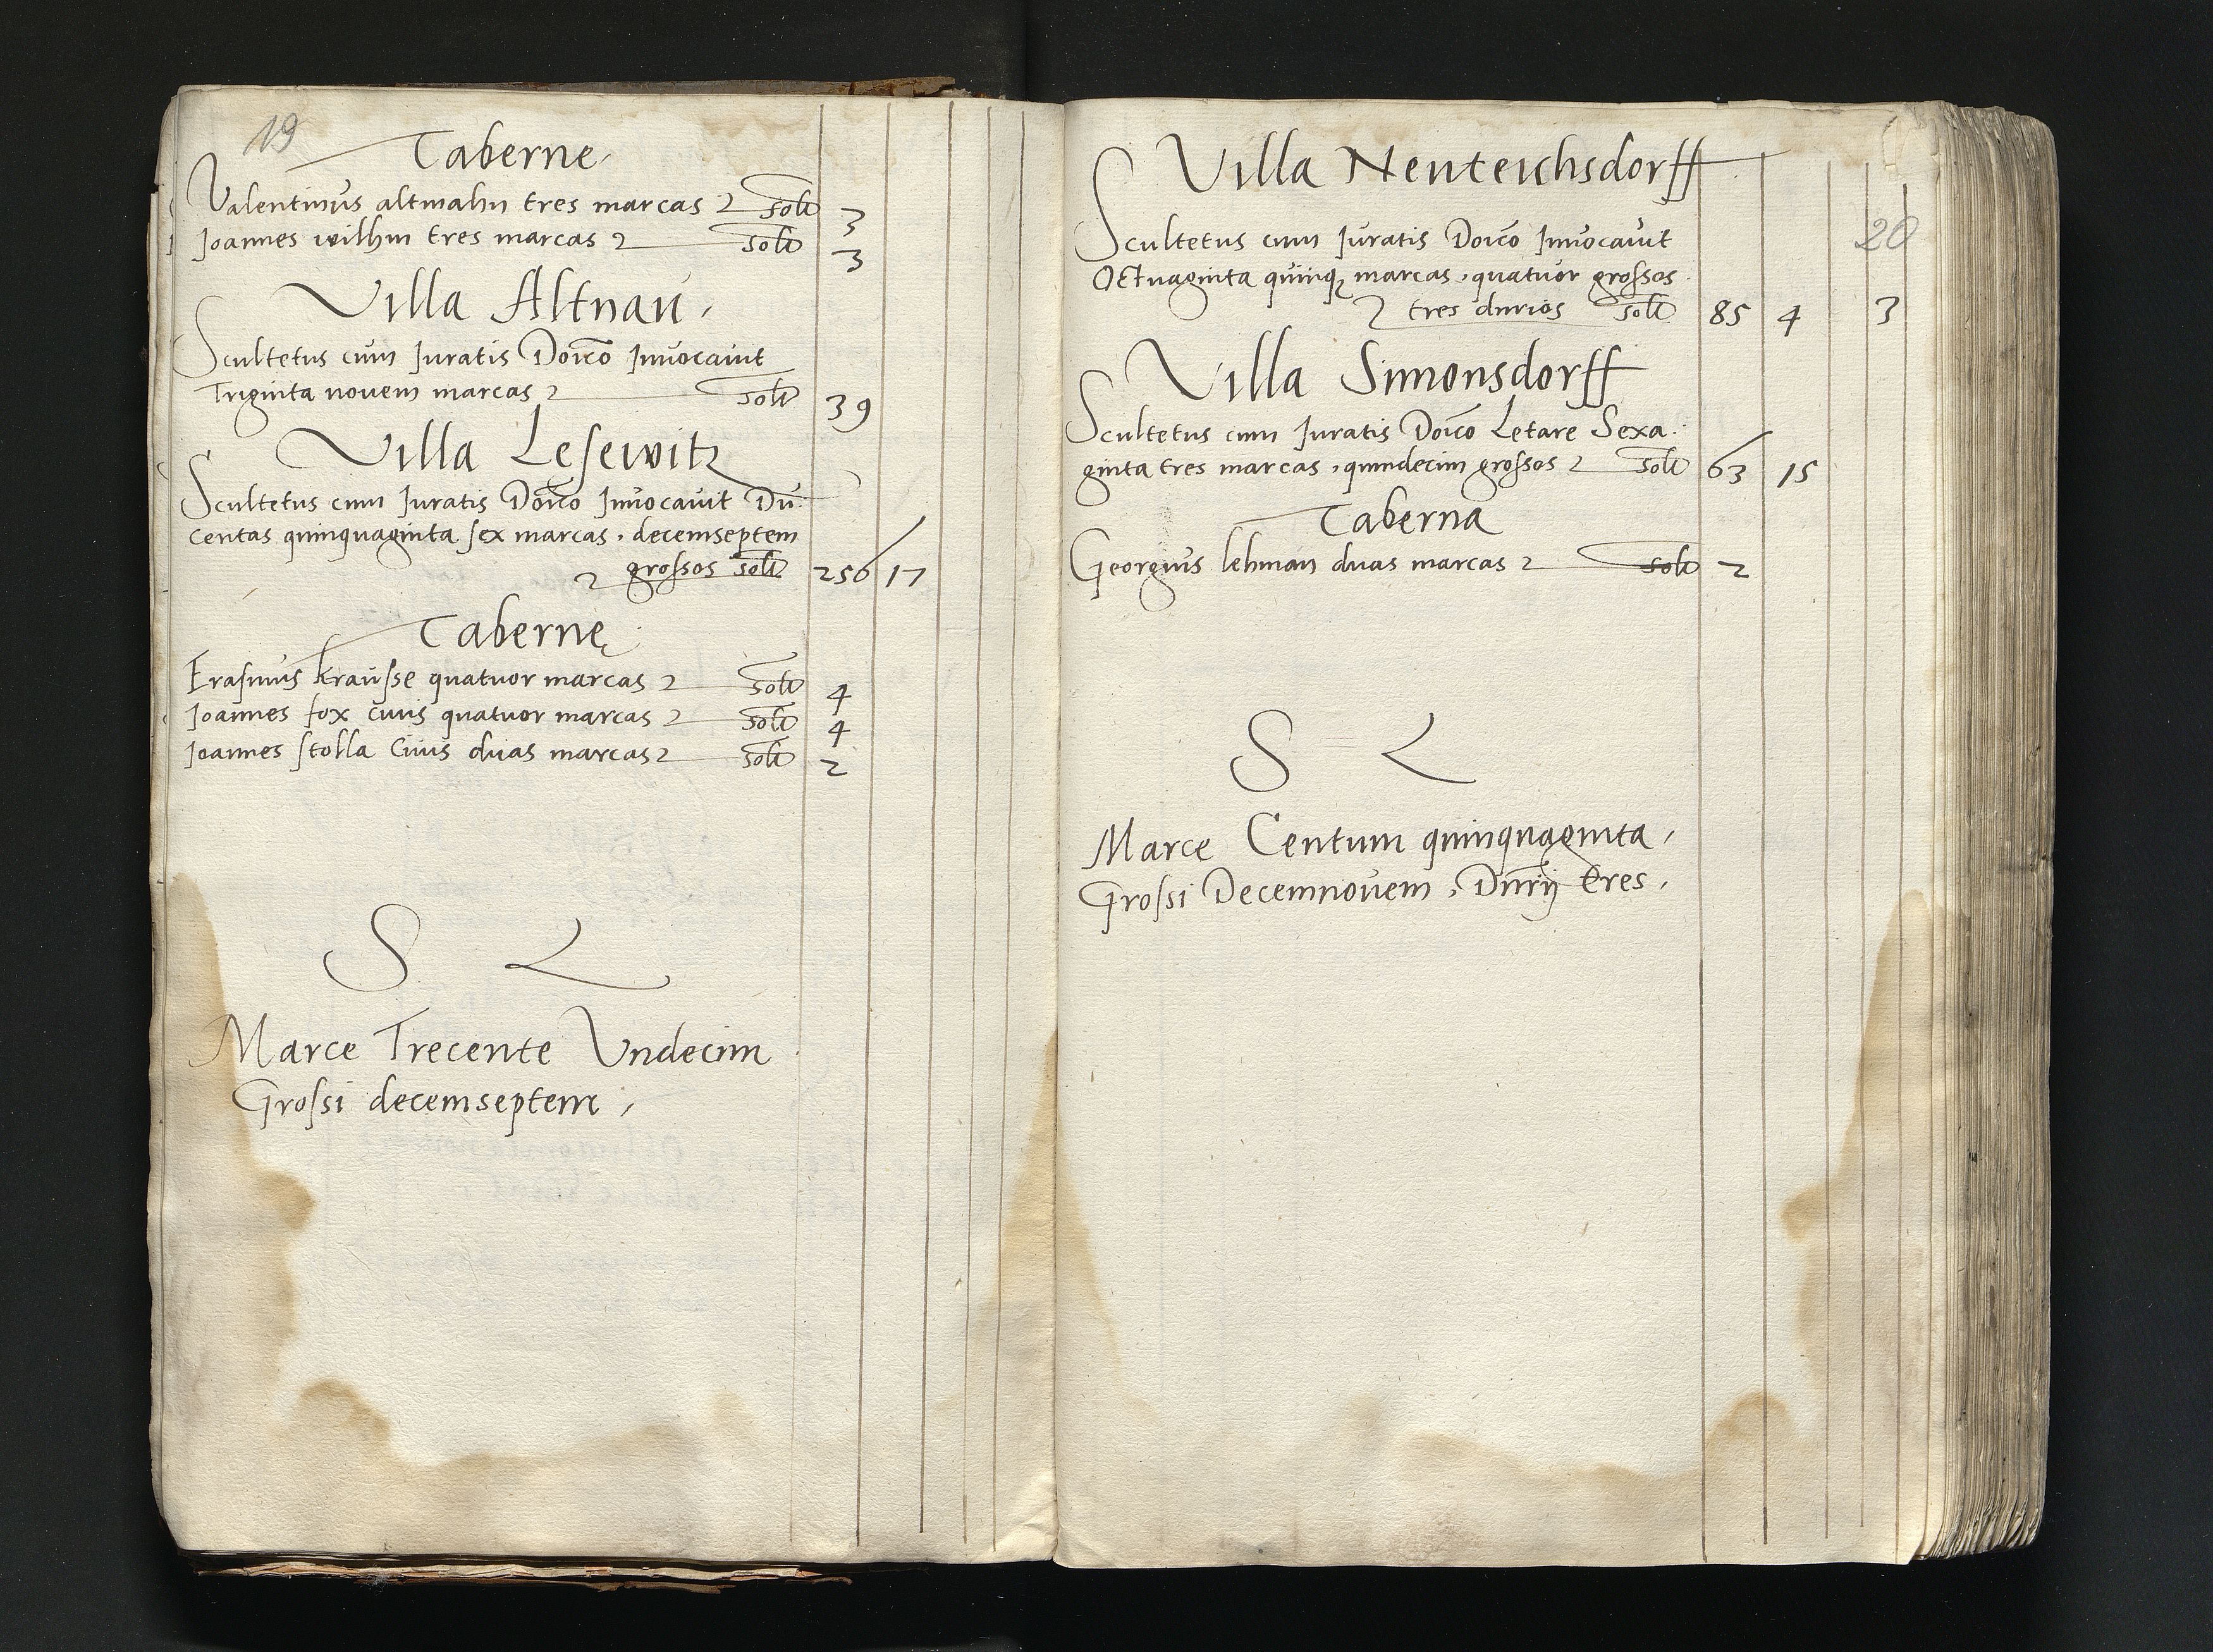 19
Taberne
Valentinus altmahn tres marcas 2 solt 3
Joannes wilhm tres marcas 2 solt 3
Villa Altnau,
Scultetus cum Juratis Doico Inuocauit
Triginta nouem marcas 2 solt 39
Villa Lesewitz
Scultetus cum Juratis Doico Inuocauit Du:
centas quinquaginta sex marcas, decemseptem
2 grossos solt 256 17
Tabernę
Erasmus krausse quatuor marcas 2 solt 4
Joannes fox ciuis quatuor marcas 2 solt 4
Joannes stolla Ciuis duas marcas 2 solt 2
S L
Marce Trecente Vndecim
Grossi decemseptem,
Villa Nenteichsdorff
20
Scultetus cum Juratis Doico Inuocauit
Octuaginta quinq marcas, quatuor grossos
2 tres dnrios solt 85 4 3
Villa Simonsdorff
Scultetus cum Juratis Doico Letare Sexa:
ginta tres marcas, quindecim grossos 2 solt 63 15
Taberna
Georgius lehman duas marcas 2 solt 2
S L
Marce Centum quinquaginta,
Grossi Decemnouem, Dnrij tres,